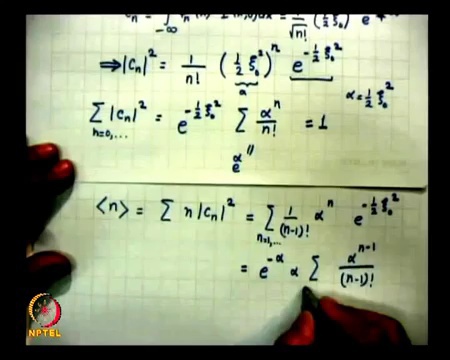 Cₙ = ∫ ψₙ*(x) Ψ(x,0) dx = 1/√n! (½ξ₀²) e
-∞
⟹ |cₙ|² = 1/n! (½ξ₀²)ⁿ e^{-½ξ₀²}
α
α = ½ξ₀²
∑ |cₙ|² = e^{-½ξ₀²} ∑ αⁿ/n! = 1
n=0,...
e^α
⟨n⟩ = ∑ n|cₙ|² = ∑ 1/(n-1)! αⁿ e^{-½ξ₀²}
n=1,...
= e^{-α} α ∑ α^{n-1}/(n-1)!
NPTEL